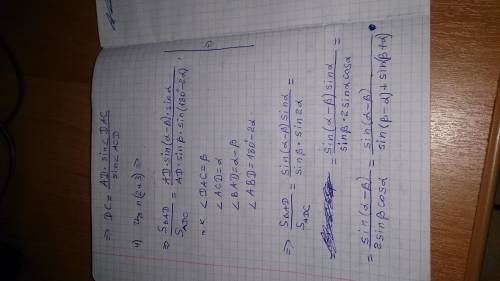 ⇒ DC = AD · sin∠DAC / sin∠ACD
4) из п(2 и 3) ⇒
⇒ S_BAD / S_ADC = AD · sin(α-β) · sinα / AD · sinβ · sin(180°-2α) ,
т.к. ∠DAC = β
∠ACD = α
∠BAD = α-β
∠ABD = 180°-2α
⇒ S_BAD / S_ADC = sin(α-β) sinα / sinβ · sin2α =
= sin(α-β) sinα / sinβ · 2sinα cosα =
= sin(α-β) / 2sinβ cosα = sin(α-β) / sin(β-α) + sin(β+α) .